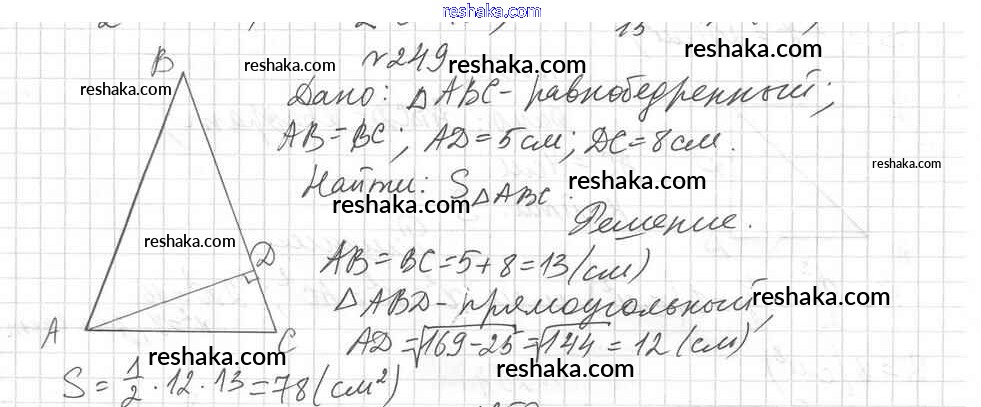 reshaka.com
№249
Дано: △ABC - равнобедренный;
AB = BC; AD = 5 см; DC = 8 см.
Найти: S△ABC
Решение.
AB = BC = 5 + 8 = 13 (см)
△ABD - прямоугольный,
AD = √169-25 = √144 = 12 (см)
S = 1/2 · 12 · 13 = 78 (см²)
B
D
A
C
reshaka.com
reshaka.com
reshaka.com
reshaka.com
reshaka.com
reshaka.com
reshaka.com
reshaka.com
reshaka.com
reshaka.com
reshaka.com
reshaka.com